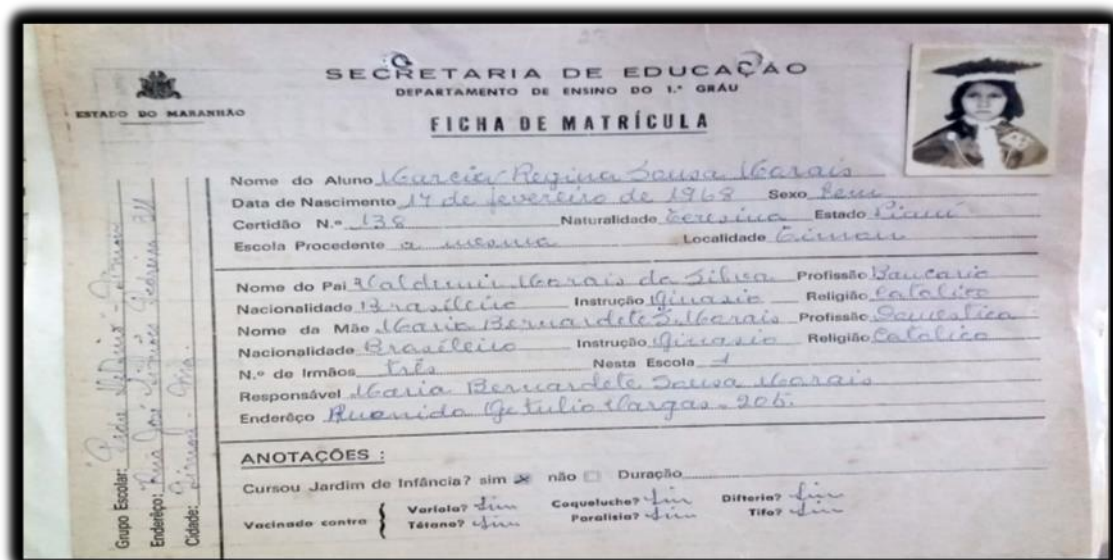 SECRETARIA DE EDUCAÇÃO
DEPARTAMENTO DE ENSINO DO 1.º GRÁU
ESTADO DO MARANHÃO
FICHA DE MATRÍCULA
Nome do Aluno Marcia Regina Sousa Morais
Data de Nascimento 17 de fevereiro de 1968 Sexo Fem
Certidão N.º 138 Naturalidade Teresina Estado Piauí
Escola Procedente a mesma Localidade Timon
Nome do Pai Valdemir Morais da Silva Profissão Bancario
Nacionalidade Brasileiro Instrução Ginasio Religião Catolico
Nome da Mãe Maria Bernardete S. Morais Profissão Domestica
Nacionalidade Brasileiro Instrução Ginasio Religião Catolica
N.º de Irmãos três Nesta Escola 1
Responsável Maria Bernardete Sousa Morais
Enderêço Avenida Getulio Vargas - 205.
ANOTAÇÕES :
Cursou Jardim de Infância? sim x não Duração
Vacinado contra { Varíola? Sim Coqueluche? Sim Difteria? Sim
Tétano? Sim Paralisia? Sim Tifo? Sim
Grupo Escolar: Padre Delfino - Timon
Enderêço: Rua José Simões Pedreira
Cidade: Timon -